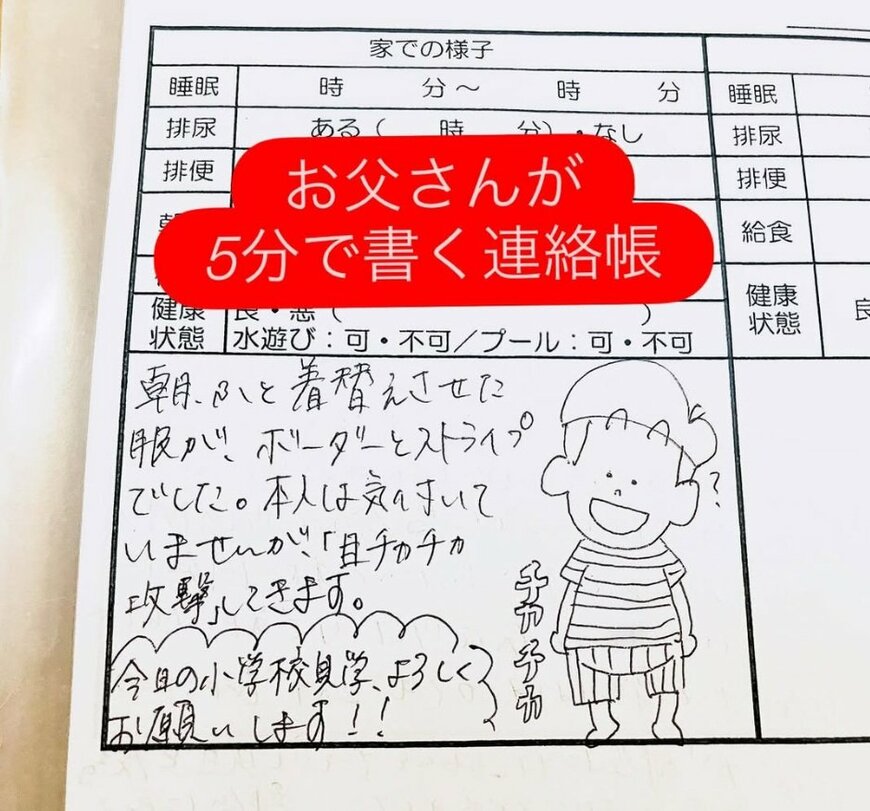 家での様子
睡眠 時 分～ 時 分
睡眠
排尿 ある( 時 分)・なし
排尿
排便
排便
お父さんが
5分で書く連絡帳
給食
健康状態 良・悪( )
水遊び：可・不可／プール：可・不可
健康状態
朝、パッと着替えさせた
服が、ボーダーとストライプ
でした。本人は気付いて
いませんが、「目チカチカ
攻撃」してきます。
チカチカ
?
今日の小学校見学、よろしく
お願いします!!